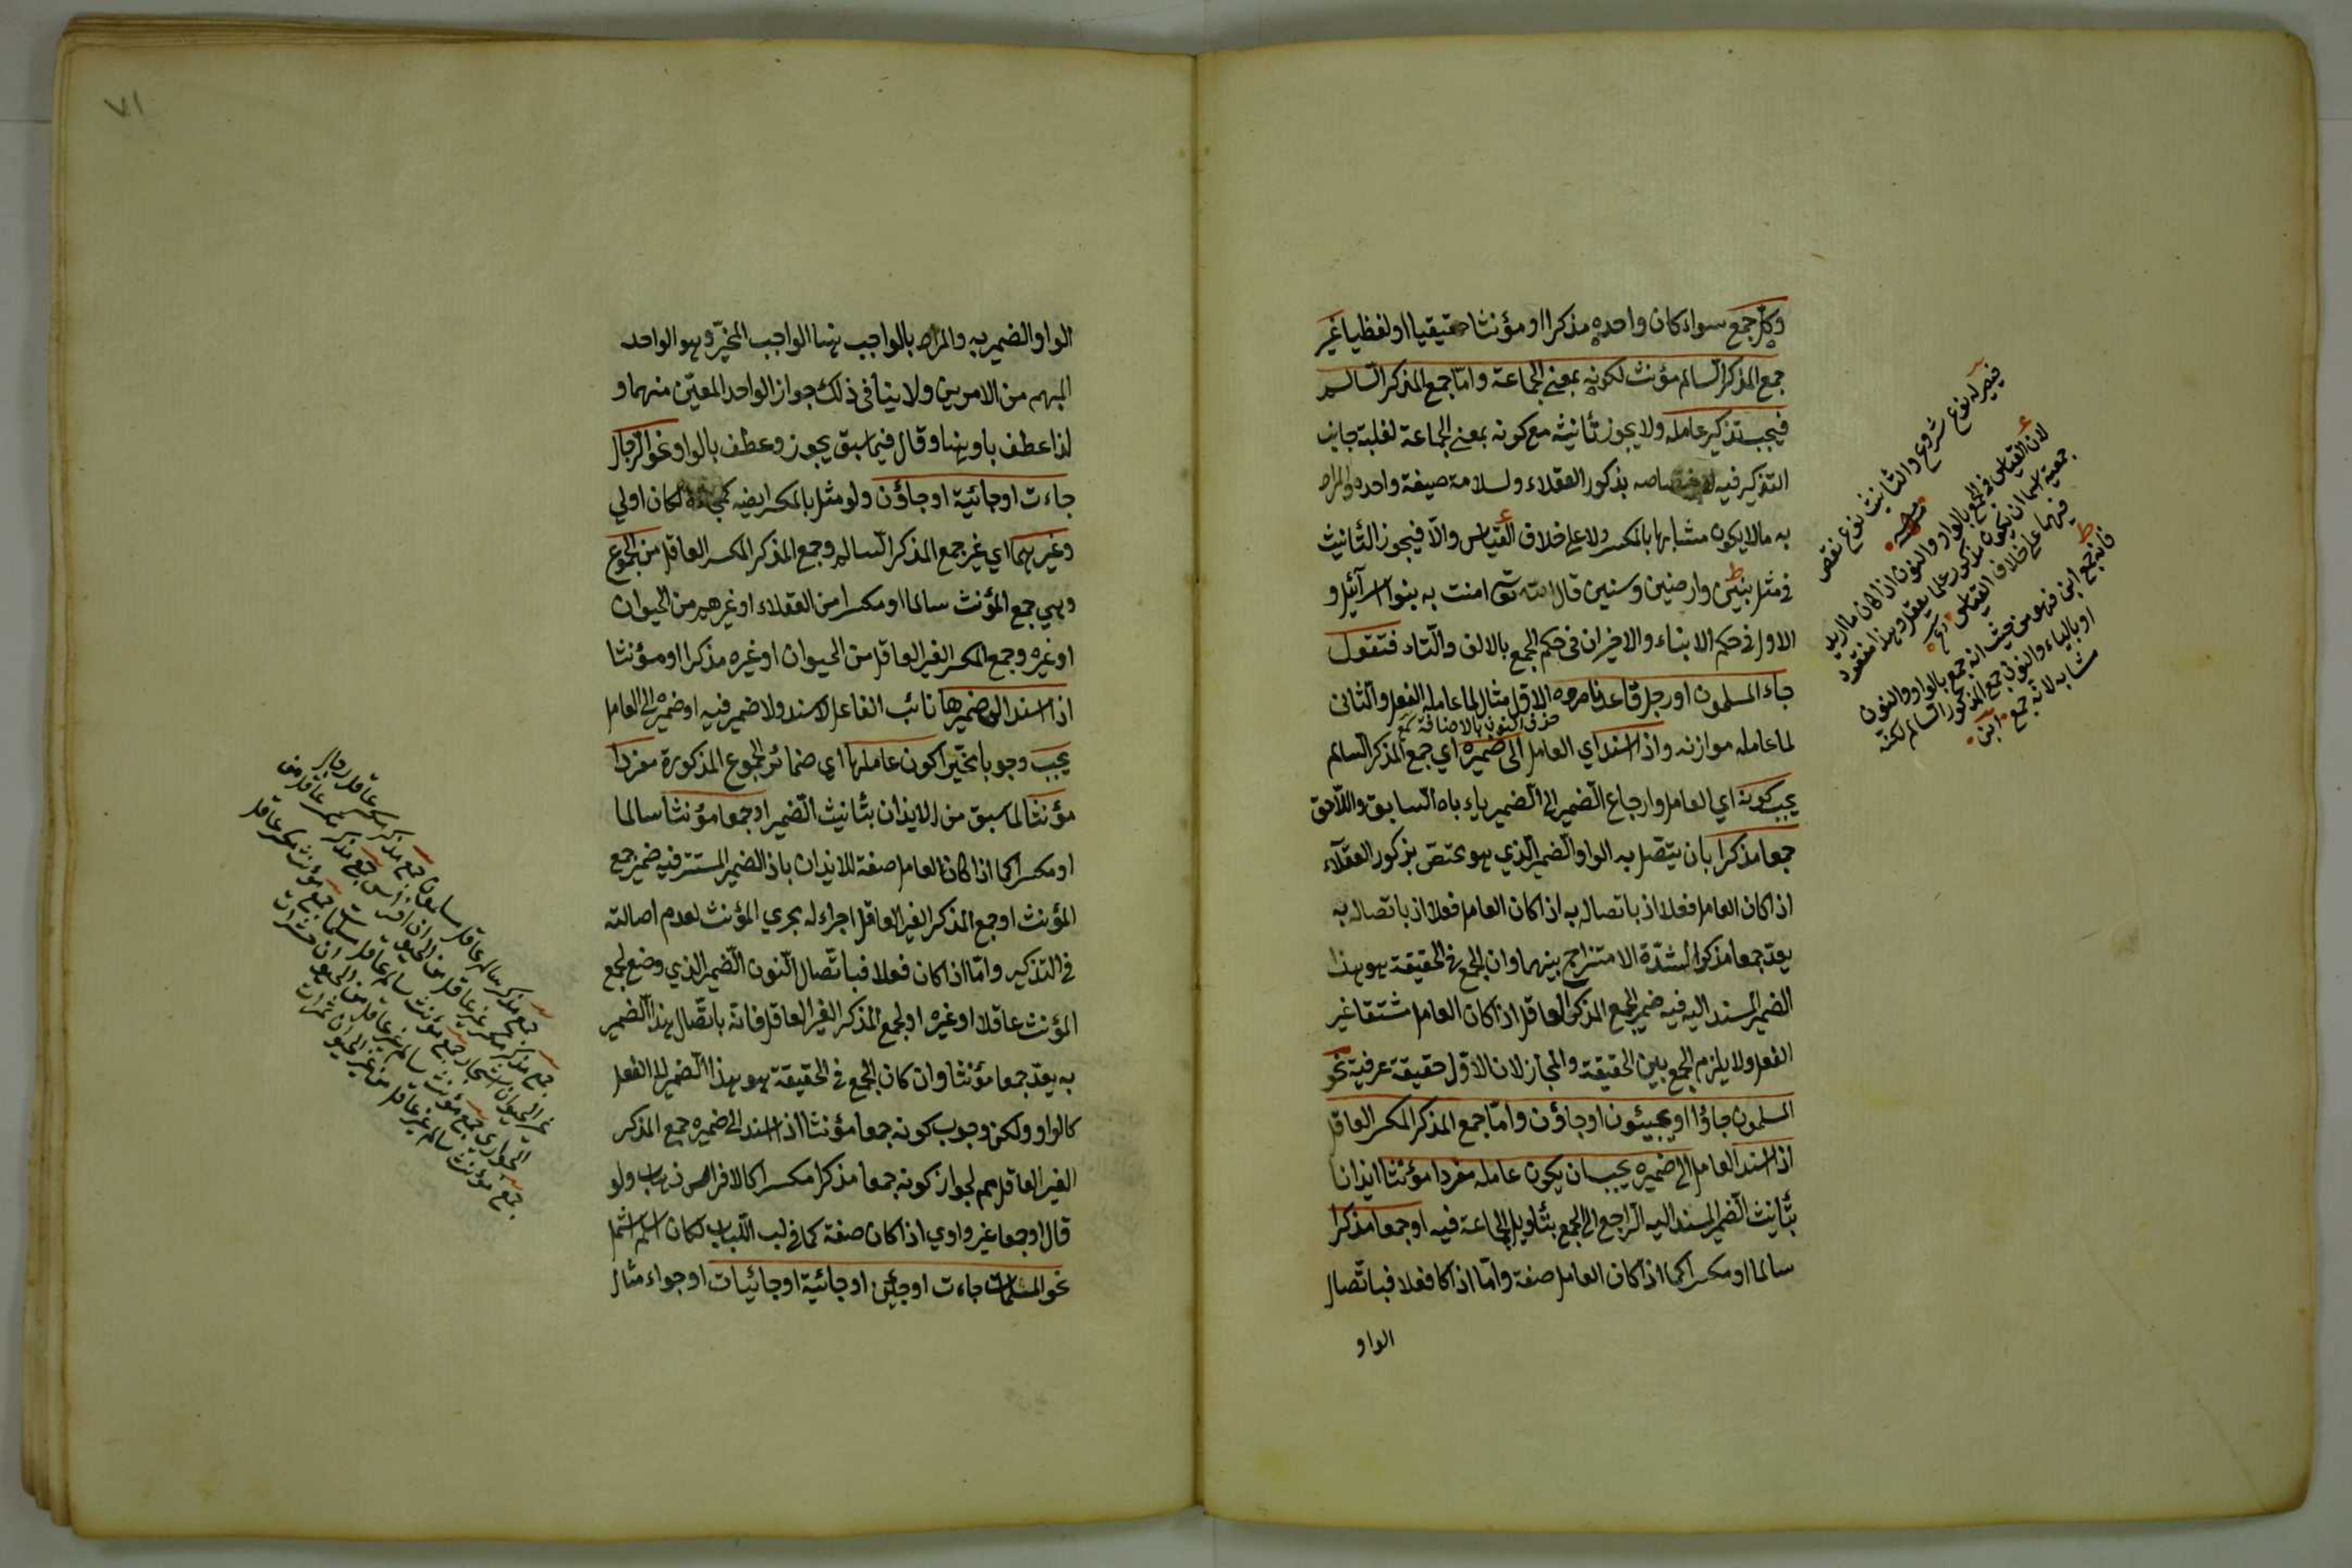 وكل جمع سواء كان واحده مذكرا او مؤنثا حقيقيا او لفظيا غير
جمع المذكر السالم مؤنث لكونه بمعنى الجماعة واما جمع المذكر السالم
فيجب تذكير عامله ولا يجوز تأنيثه مع كونه بمعنى الجماعة لغلبة جانب
التذكير فيه لاختصاصه بذكور العقلاء ولسلامة صيغة واحده والمراد
به ما لا يكون مشابها بالمكسر ولا على خلاف القياس والا فيجوز التأنيث
في مثل بنين وارضين وسنين قال الله تعالى امنت به بنوا اسرآئيل و
الاول في حكم الابناء والاخيران في حكم الجمع بالالف والتاء فتقول
جاء المسلمون او رجل قاعد ناصروه الاول مثال لما عامله الفعل والثانى
حذف النون بالاضافة
لما عامله موازنه واذا اسند اي العامل الى ضميره اي جمع المذكر السالم
يجب كونه اي العامل وارجاع الضمير الى الضمير ياباه السابق واللاحق
جمعا مذكرا بان يتصل به الواو الضمير الذي هو مختص بذكور العقلاء
اذا كان العامل فعلا اذ باتصاله به اذا كان العامل فعلا اذ باتصاله به
يعد جمعا مذكرا لشدة الامتزاج بينهما وان الجمع في الحقيقة هو هذا
الضمير المسند اليه فيه ضمير الجمع المذكر العاقل اذا كان العامل مشتقا غير
الفعل ولا يلزم الجمع بين الحقيقة والمجاز لان الاول حقيقة عرفية نحو
المسلمون جاؤا او يجيئون او جاؤن واما جمع المذكر المكسر العاقل
اذا اسند العامل الى ضميره يجب ان يكون عامله مفردا مؤنثا ايذانا
بتأنيث الضمير المسند اليه الراجع الى الجمع بتأويل الجماعة فيه او جمعا مذكرا
سالما او مكسرا كما اذا كان العامل صفة واما اذا كا فعلا فباتصال
الواو
فيصير له نوع شروع والتأنيث نوع نقص
لان القياس في الجمع بالواو والنون اذا كان ما اريد
جمعيته اسما ان يكون مذكور علما يعقل وهذا مفقود
فيهما على خلاف القياس
فانه جمع ابن فهو من حيث انه جمع بالواو والنون
او بالياء والنون جمع المذكور السالم لكنه
مشابه لانه جمع ابن
٧١
الواو الضمير به والمراد بالواجب هنا الواجب المخير وهو الواحد
المبهم من الامرين ولا ينافى ذلك جواز الواحد المعين منهما و
لذا عطف باو هنا وقال فيما سبق يجوز وعطف بالواو نحو الرجال
جاءت او جائية او جاؤن ولو مثل بالمكسر ايضا لكان اولي
وغيرهما اي غير جمع المذكر السالم وجمع المذكر المكسر العاقل من الجموع
وهي جمع المؤنث سالما او مكسرا من العقلاء او غيرهم من الحيوان
او غيره وجمع المكسر الغير العاقل من الحيوان او غيره مذكرا او مؤنثا
اذا اسند الى ضميرها نائب الفاعل لاسند ولا ضمير فيه او ضميره الى العامل
يجب وجوبا مخيرا كون عاملها اي ضمائر الجموع المذكورة مفردا
مؤنثا لما سبق من الايذان بتأنيث الضمير او جمعا مؤنثا سالما
او مكسرا كما اذا كان العامل صفة للايذان باذ الضمير المستتر فيه ضمير جمع
المؤنث او جمع المذكر الغير العاقل اجراء له مجري المؤنث لعدم اصالته
في التذكير واما اذا كان فعلا فباتصال النون الضمير الذي وضع لجمع
المؤنث عاقلا او غيره او لجمع المذكر الغير العاقل فانه باتصال هذا الضمير
به يعد جمعا مؤنثا وان كان الجمع في الحقيقة هو هذا الضمير لا الفعل
كالواو ولكن وجوب كونه جمعا مؤنثا اذا اسند الى ضميره جمع المذكر
الغير العاقل مم لجواز كونه جمعا مذكرا مكسرا كالافراس ذهاب ولو
قال او جمعا غير واوي اذا كان صفة كما في لب اللباب لكان اسلم اشمل
نحو المسلمات جاءت او جئن او جائية او جائيات او جواء مثال
جمع مذكر سالم عاقل مسلمون جمع مذكر مكسر عاقل رجال
جمع مذكر مكسر غير عاقل من الحيوان افراس جمع مذكر مكسر عاقل من
غير الحيوان اشجار جمع مؤنث سالم عاقل مسلمات جمع مؤنث مكسر عاقل
الجواري جمع مؤنث سالم غير عاقل من الحيوان حشرات
جمع مؤنث سالم غير عاقل من غير الحيوان ثمرات